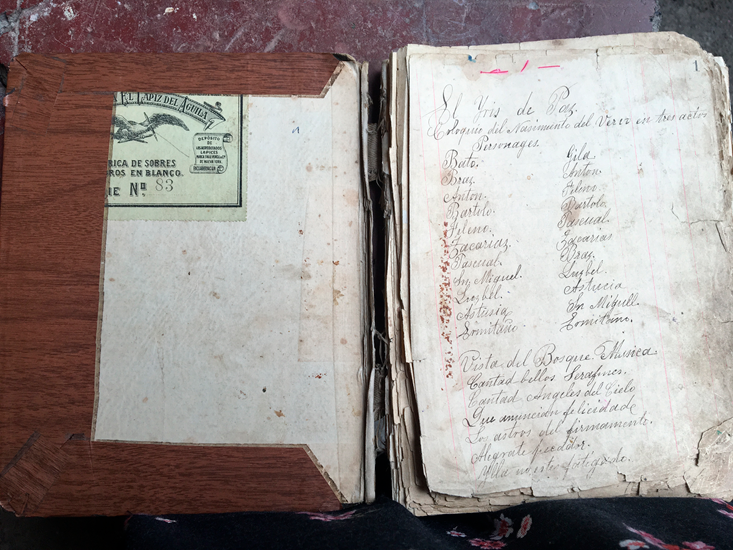 EL LAPIZ DEL AGUILA
DEPÓSITO
DE
LAPICES
RICA DE SOBRES
ROS EN BLANCO.
IE Nº 83
1
1
1
El Yris de Paz
Cologuio del Nasimiento del Vervo en tres actos
Personages.
Bato. Gila
Braz. Anton
Anton. Fileno.
Bartolo Bartolo
Fileno. Pascual.
Zacariaz. Zacarias
Pascual. Braz.
Sn Miguel. Luzbel.
Luzbel. Astucia
Astusia Sn Miguell.
Ermitaño Ermitaño.
Vista del Bosque. Musica
Cantad bellos Serafines.
Cantad Angeles del Cielo
Que anuncian felicidade
Los astros del firmamento.
Alegrate pecador.